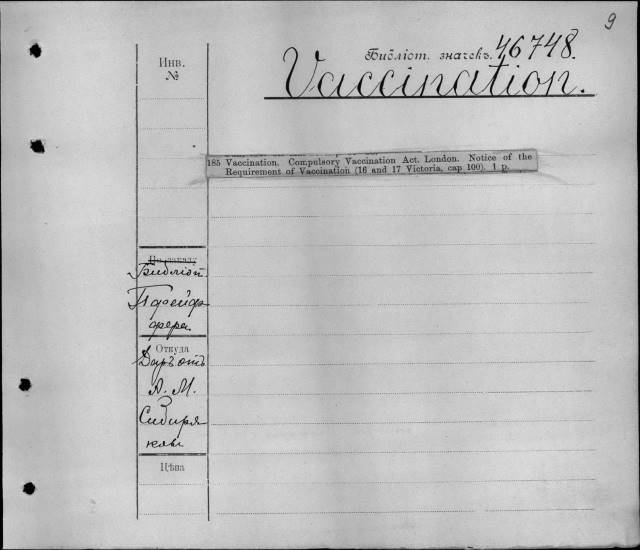 9
Инв.
№
Библіот. значекъ. 46748.
Vaccination.
185 Vaccination. Compulsory Vaccination Act. London. Notice of the
Requirement of Vaccination (16 and 17 Victoria, cap 100). 1 p.
По заказу
Библіот.
Пфейф
фера.
Откуда
Даръ отъ
А. М.
Сибиря
кова
Цѣна